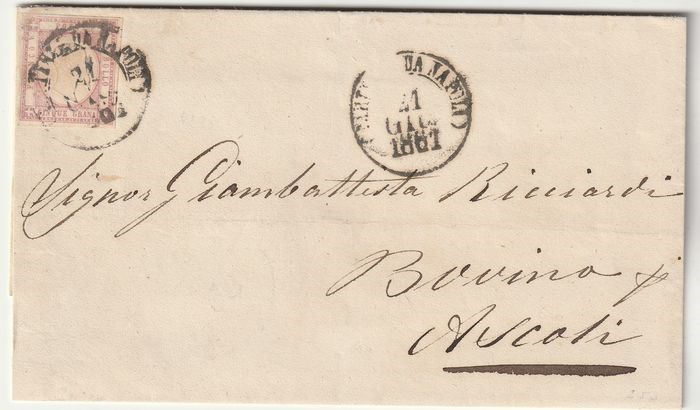 CINQUE GRANA
DA NAPOLI
21
GIU
1861
Signor Giambattista Ricciardi
Bovino p
Ascoli